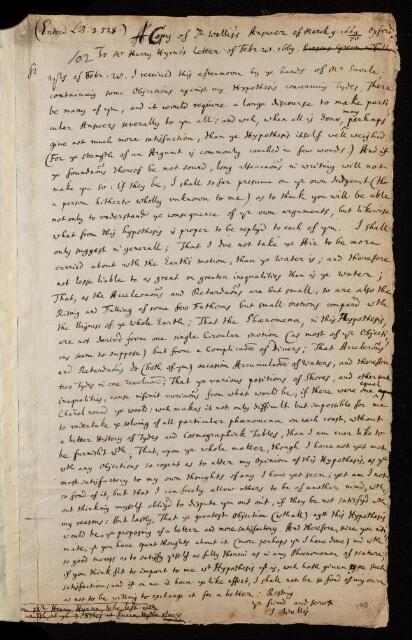 (Entred LB. 3. 328) A Copy of Dr Wallis's Answer of March 9. 1669/70 Oxford
102 To Mr Harry Hyrne's Letter of Febr. 28. 1669.
Sr
Yrs of Febr. 28. I received this afternoon by ye hands of Mr Savile,
containing some Objections against my Hypothesis concerning Tydes, There
be many of ym, and it would require a large discourse to make parti
cular Answers severally to ym all; and wch, when all is done, may perhaps
give not much more satisfaction, than ye Hypothesis itself well weighed
(For ye strength of an Argumt is commonly couched in few words.) And if
ye foundations thereof be not sound, long altercaons in writing will not
make ym so: If they be, I shall so far presume on yr own Judgemt (tho
a person hitherto wholly unknown to me) as to think you will be able
not only to understand ye consequence of yr own arguments, but likewise
what from this hypothesis is proper to be replyd to each of ym. I shall
only suggest in generall; That I doe not take ye Air to be more
carried about with the Earths motion, than ye Water is; and therefore
not lesse liable to as great or greater inequalities than is ye water;
That, as the Acceleraons and Retardaons are but small, so are also the
Rising and Falling of some few Fathoms but small motions compard with
the Bigness of ye whole Earth; That the Phænomena, in this Hypothesis,
are not derived from one single Circular motion (as most of yr Objecti
ons seem to suppose) but from a Complication of Divers; That Acceleraons
and Retardaons do (both of ym) occasion Accumulaons of Waters, and therefore
two Tydes in one Revolution; That ye various positions of Shores, and other such
inequalities, cause infinit variaons from what would be, if there were one equal
Chanel round ye world; wch makes it not only difficult but impossible for me
to undertake ye solving of all particular phænomena on each coast, without
a better History of Tydes and Cosmographick Tables, than I am ever like to
be furnisht wth. That, upon ye whole matter, though I have not yet met
wth any Objections so cogent as to alter my opinion of this Hypothesis, as ye
most satisfactory to my own thoughts of any I have yet seen; yet am I not
so fond of it, but that I can freely allow others to be of another mind, with
out thinking myself oblig'd to dispute ym out on't, if they be not satisfyd wth
my reasons: But lastly, That ye greatest objection (wth all) agst this Hypothesis
would be ye proposing of a better and more satisfactory. And therefore, since you inti
mate, yt you have spent thoughts about it (more perhaps yn I have done) and wth
so good success as to satisfy yrself as fully therein as in any Phænomenon of Nature;
if you think fit to impart to me yt Hypothesis of yrs, wch hath given you such
satisfaction; and if on me it have ye like effect, I shall not be so fond of my own
as not to be willing to exchange it for a better: Resting
yr friend and servt
J. Wallis
Mr Henry Hyrne, to be left with
190